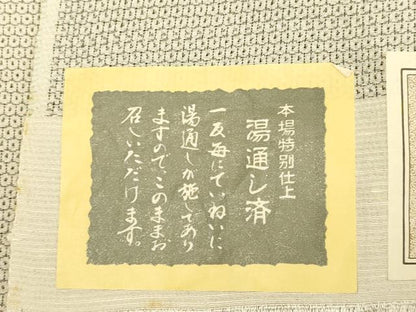 本場特別仕上
湯通し済
一反毎にていねいに
湯通しが施してあり
ますので、このままお
召しいただけます。